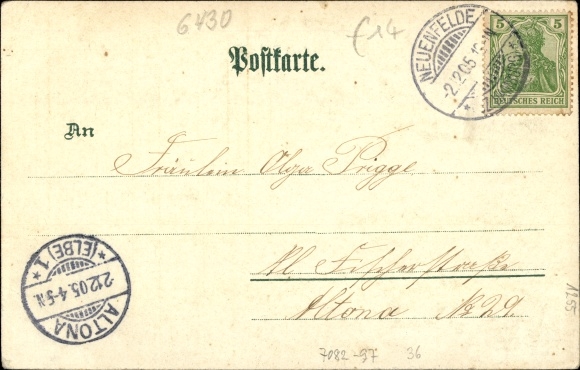 6430
£14
Postkarte.
NEUENFELDE
2.12.05.
5 5
DEUTSCHES REICH
An
Fräulein Olga Prigge
kl. Fischerstraße
Altona No 29.
ALTONA
2.12.05.4-5N
*(ELBE)1*
1255
7082-97 36